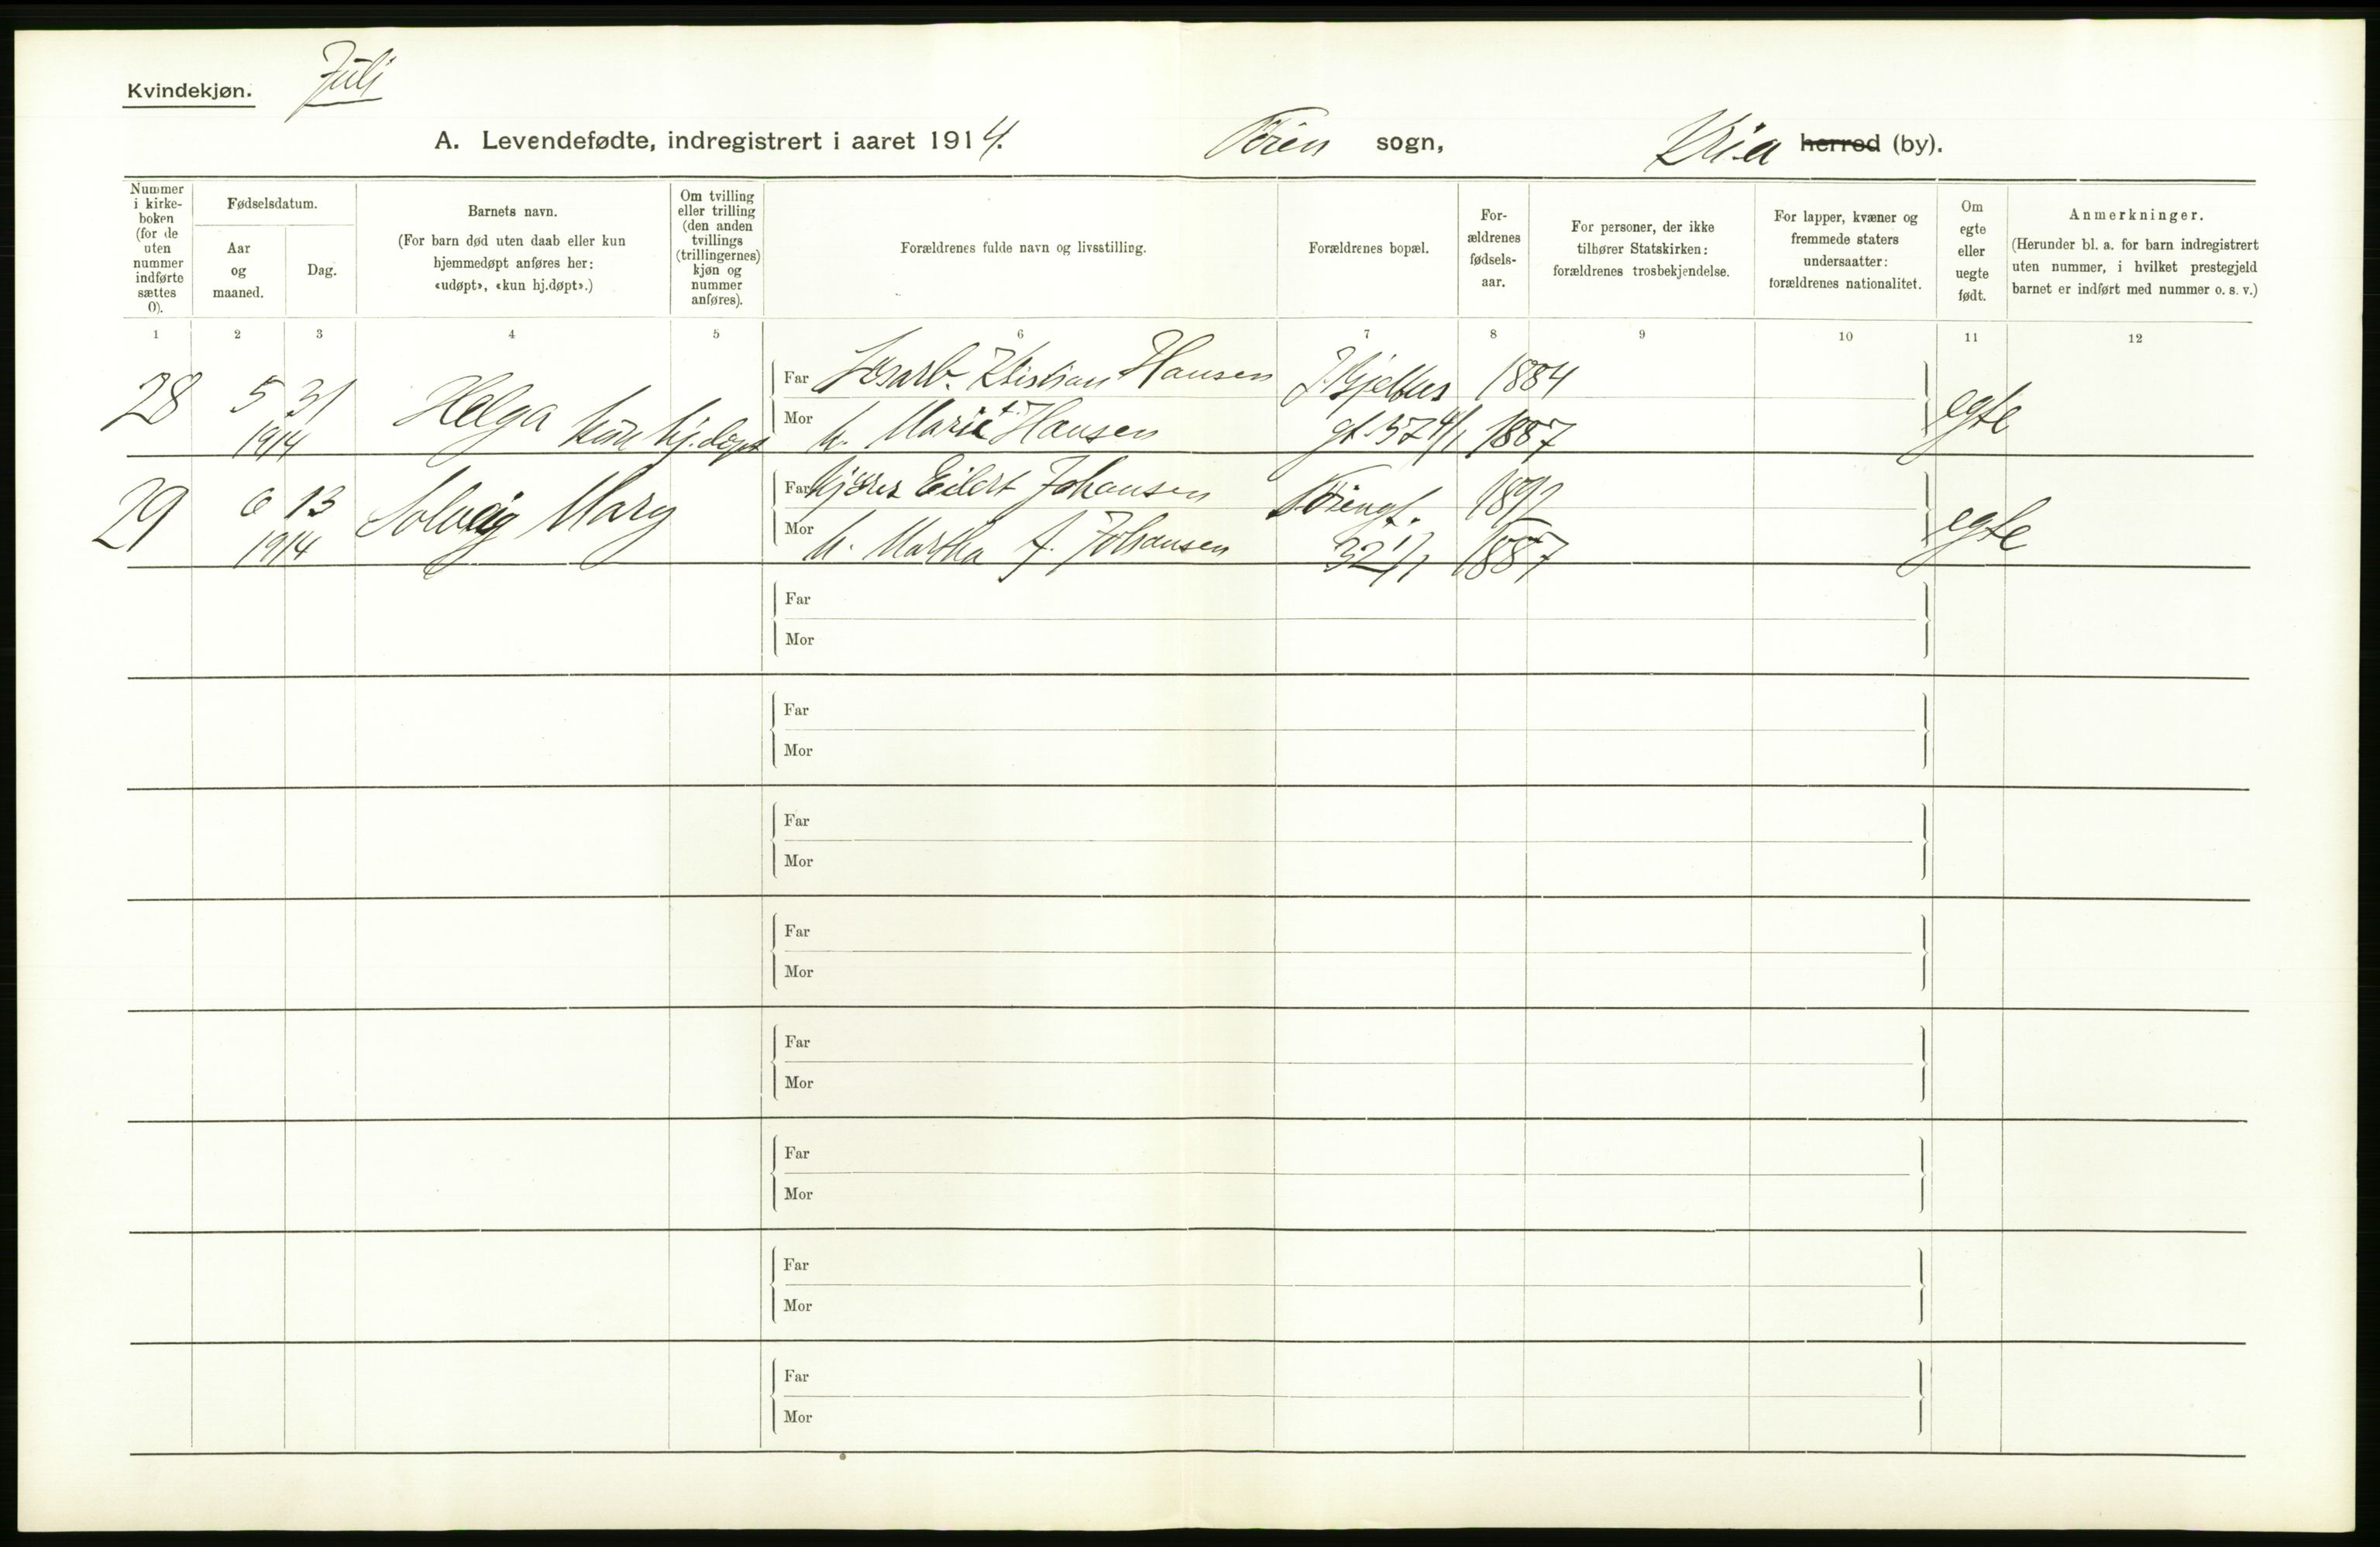 Kvindekjøn.
Juli
A. Levendefødte, indregistrert i aaret 1914.
sogn,
Kr.a herred (by).
Nummer i kirke-boken (for de uten nummer indførte sættes 0).
Fødselsdatum.
Aar og maaned.
Dag.
Barnets navn.
(For barn død uten daab eller kun hjemmedøpt anføres her: «udøpt», «kun hj.døpt».)
Om tvilling eller trilling (den anden tvillings (trillingernes) kjøn og nummer anføres).
Forældrenes fulde navn og livsstilling.
Forældrenes bopæl.
For-ældrenes fødsels-aar.
For personer, der ikke tilhører Statskirken: forældrenes trosbekjendelse.
For lapper, kvæner og fremmede staters undersaatter: forældrenes nationalitet.
Om egte eller uegte født.
Anmerkninger.
(Herunder bl. a. for barn indregistrert uten nummer, i hvilket prestegjeld barnet er indført med nummer o. s. v.)
1 2 3 4 5 6 7 8 9 10 11 12
28 5 31 1914 Helga kun hj.døpt
Far Kristian Hansen 1884
Mor h. Marie Hansen 1887 egte
29 6 13 1914 Solveig Mary
Far Eilert Johansen
Mor h. Martha J. Johansen 32 1887 egte
Far
Mor
Far
Mor
Far
Mor
Far
Mor
Far
Mor
Far
Mor
Far
Mor
Far
Mor